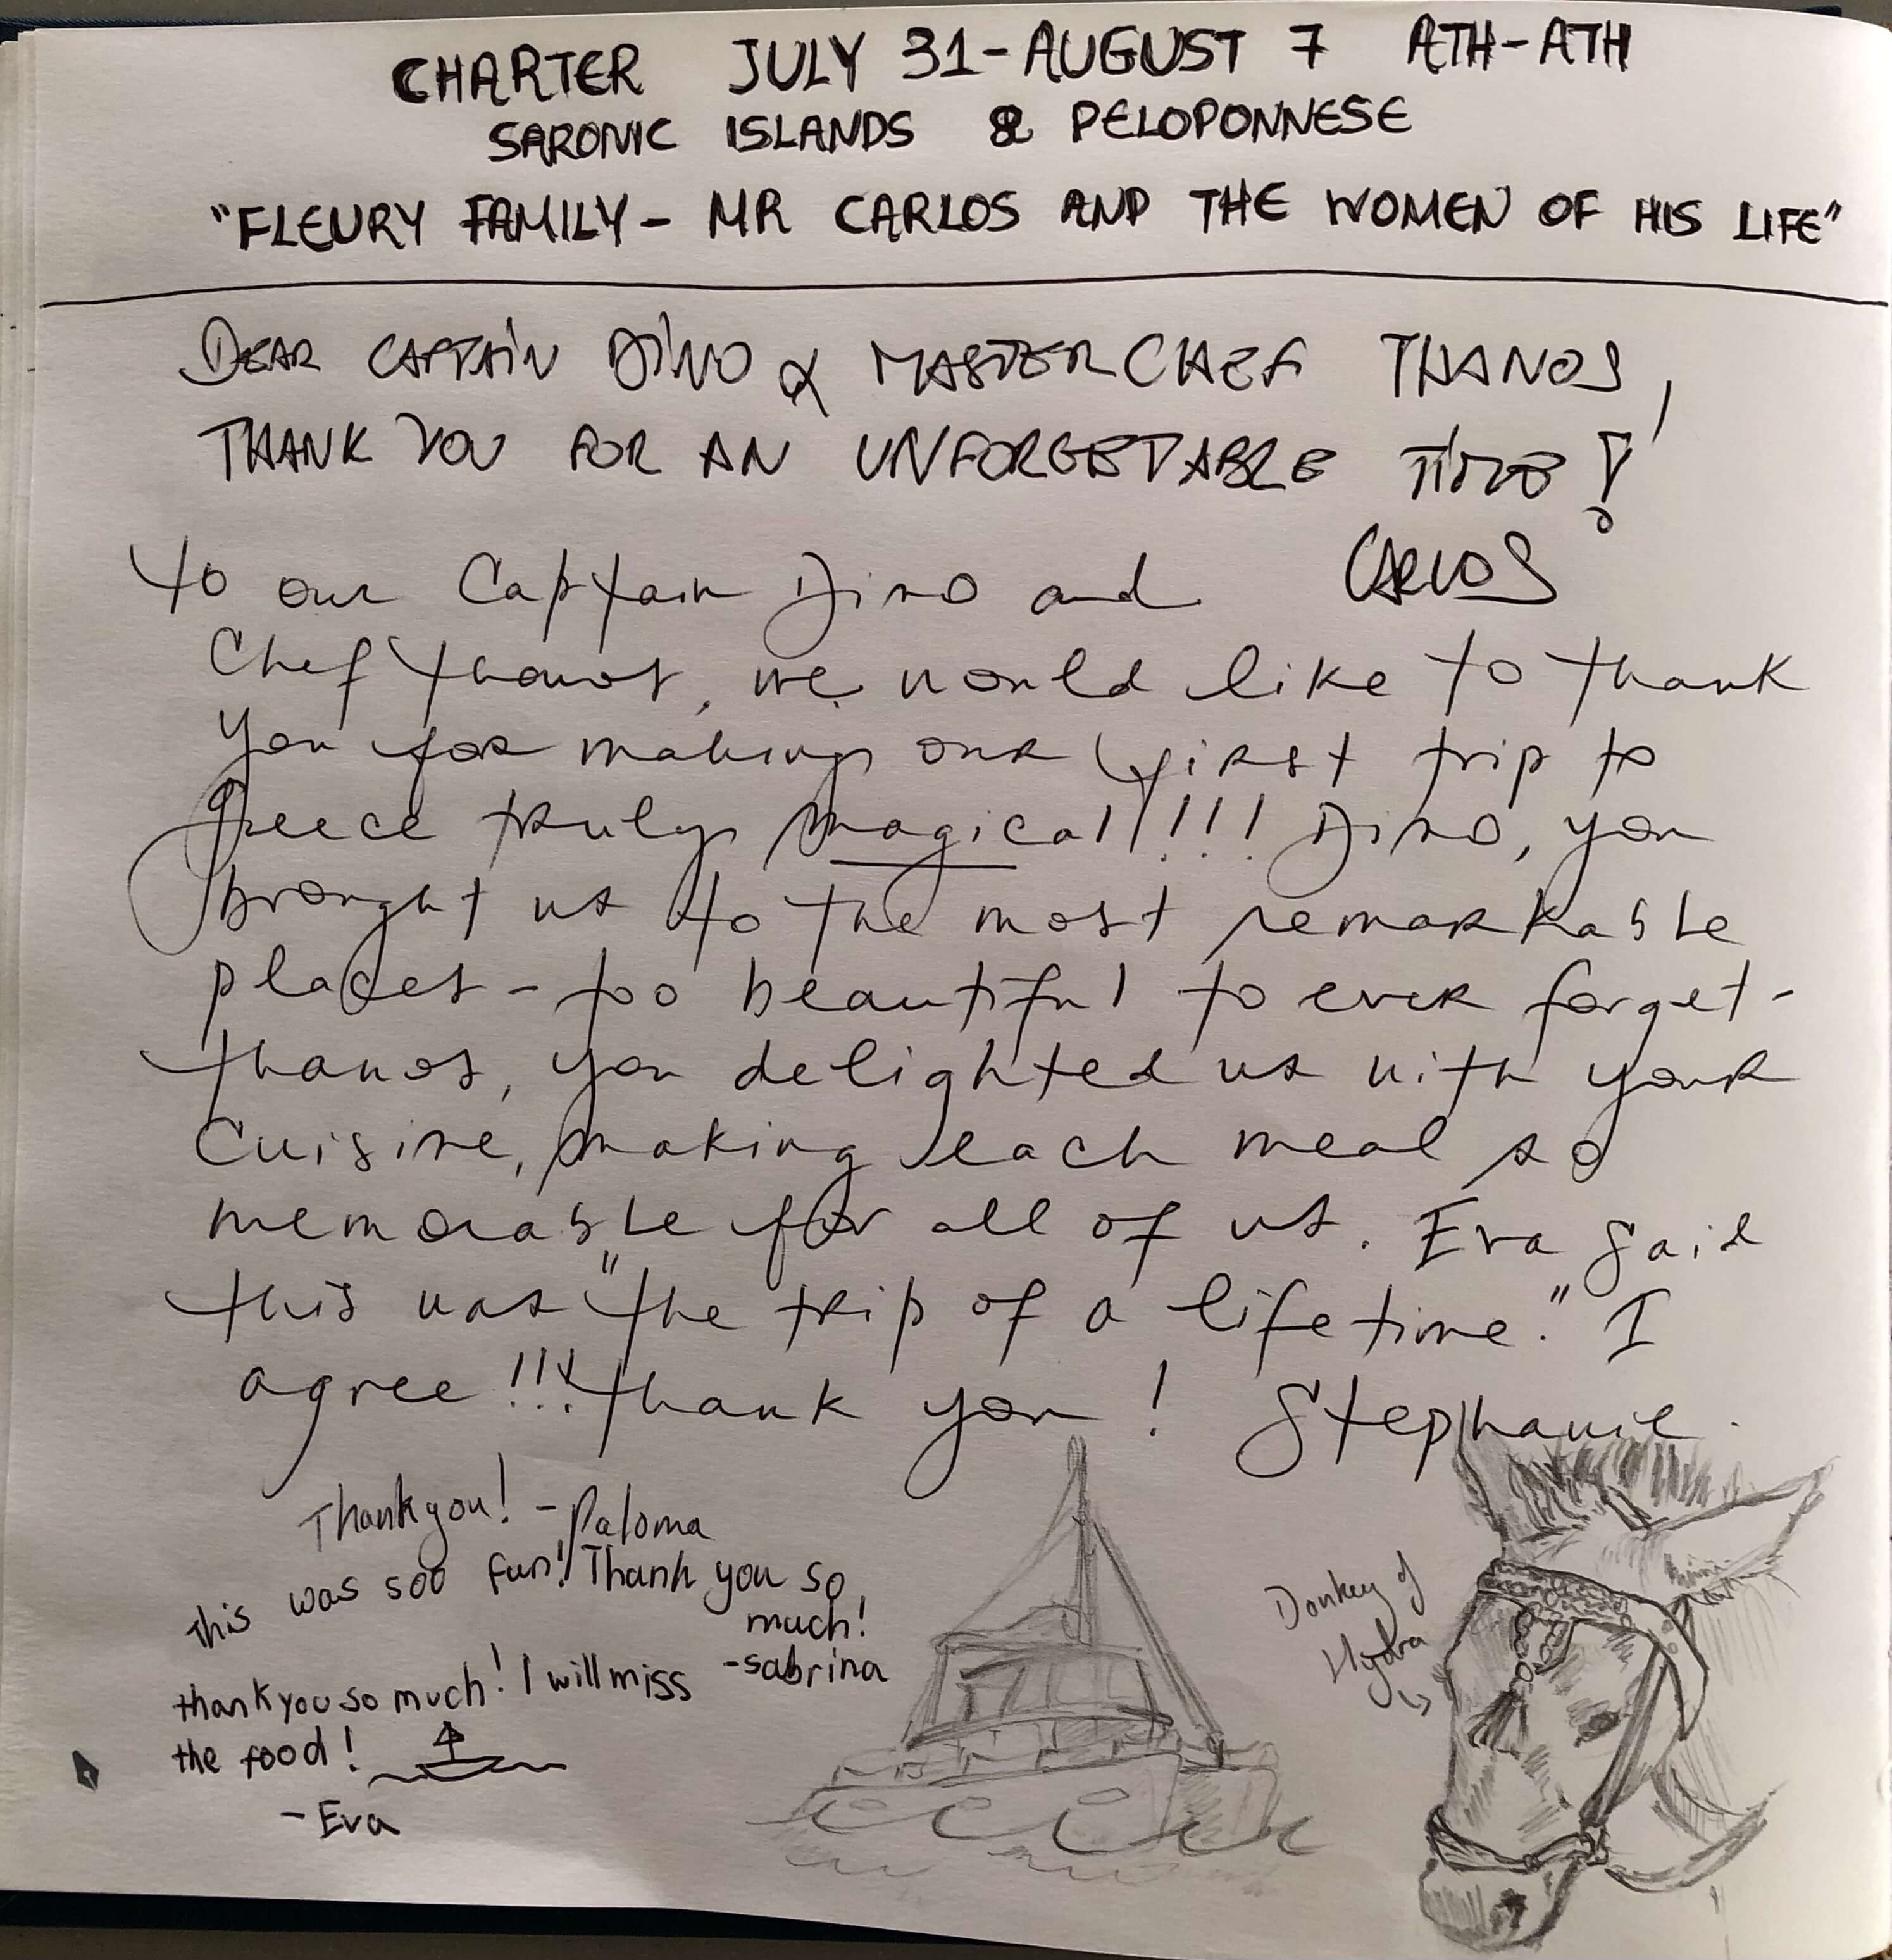 CHARTER JULY 31-AUGUST 7 ATH-ATH
SARONIC ISLANDS & PELOPONNESE
"FLEURY FAMILY- MR CARLOS AND THE WOMEN OF HIS LIFE"
DEAR CAPTAIN DINO & MASTERCHEF THANOS,
THANK YOU FOR AN UNFORGETABLE TIME!
CARLOS
to our Captain Dino and
Chef thanos, we would like to thank
you for making our first trip to
Greece truly magical!!!! Dino, you
brought us to the most remarkable
places - too beautiful to ever forget -
thanos, you delighted us with your
Cuisine, making each meal so
memorable for all of us. Eva said
this was "the trip of a lifetime." I
agree!!! thank you! Stephanie.
Thank you! - Paloma
This was soo fun! Thank you so
much!
-sabrina
thank you so much! I will miss
the food!
- Eva
Donkey of
Hydra